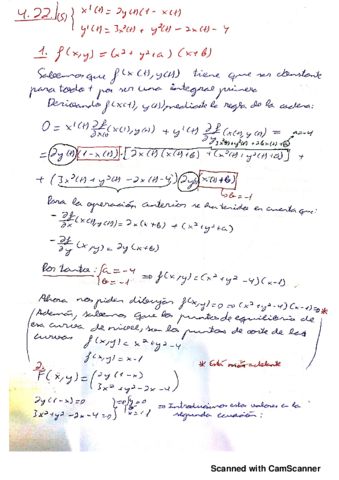 4.22. (S) { x'(t) = 2y(t)(1 - x(t))
y'(t) = 3x²(t) + y²(t) - 2x(t) - 4
1. f(x,y) = (x² + y² + a)(x + b)
Sabemos que f(x(t), y(t)) tiene que ser constante
para todo t por ser una integral primera
Derivando f(x(t), y(t)) mediante la regla de la cadena:
0 = x'(t) ∂f/∂x (x(t), y(t)) + y'(t) ∂f/∂y (x(t), y(t)) =
a = -4
= 2y(t)(1 - x(t)) · [2x(t)(x(t) + b) + (x²(t) + y²(t) + a)] +
+ (3x²(t) + y²(t) - 2x(t) - 4) 2y(t)(x(t) + b)
b = -1
Para la operación anterior se ha tenido en cuenta que:
- ∂f/∂x (x(t), y(t)) = 2x(x + b) + (x² + y² + a)
- ∂f/∂y (x,y) = 2y(x + b)
Por tanto: { a = -4 b = -1 ⇒ f(x,y) = (x² + y² - 4)(x - 1)
Ahora nos piden dibujar f(x,y) = 0 ⇒ (x² + y² - 4)(x - 1) = 0 *
Además, sabemos que los puntos de equilibrio de
esa curva de nivel, son los puntos de corte de las
curvas f(x,y) = x² + y² - 4
f(x,y) = x - 1
* Está más adelante
2.
F(x,y) = (2y(1 - x)
3x² + y² - 2x - 4)
2y(1 - x) = 0
3x² + y² - 2x - 4 = 0 } y = 0 x = 1 ⇒ Introducimos estos valores en la
segunda ecuación:
Scanned with CamScanner